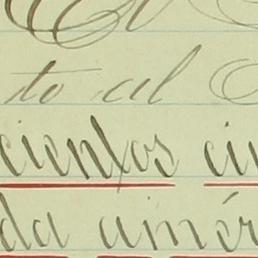 El
to al
cientos ci
da amér